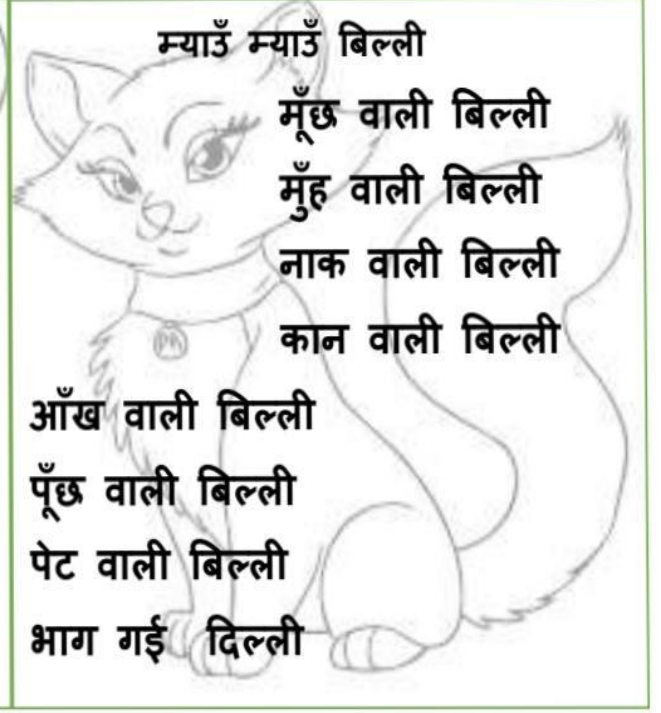 म्याउँ म्याउँ बिल्ली
मूँछ वाली बिल्ली
मुँह वाली बिल्ली
नाक वाली बिल्ली
कान वाली बिल्ली
आँख वाली बिल्ली
पूँछ वाली बिल्ली
पेट वाली बिल्ली
भाग गई दिल्ली